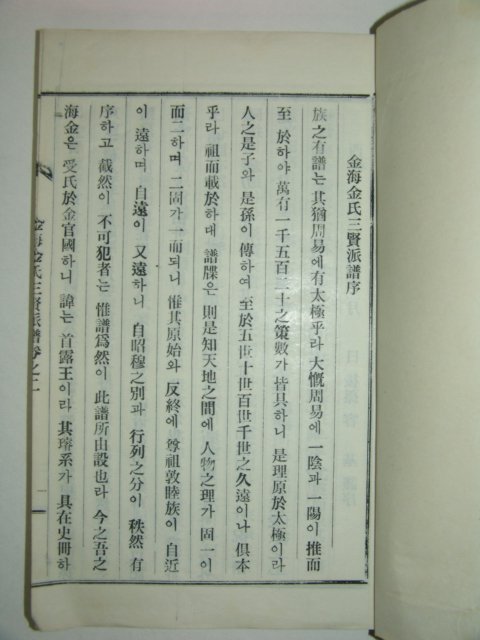 金海金氏三賢派譜序
族之有譜는 其猶周易에 有太極乎라 大慨周易에 一陰과 一陽이 推而
至於하야 萬有一千五百二十之策數가 皆具하니 是理原於太極이라
人之是子와 是孫이 傳하여 至於五世十世百世千世之久遠이나 俱本
乎라 祖而載於하대 譜牒은 則是知天地之間에 人物之理가 固一이
而二하며 二固가 一而되니 惟其原始와 反終에 尊祖敦睦族이 自近
이 遠하며 自遠이 又遠하니 自昭穆之別과 行列之分이 秩然 有
序하고 截然이 不可犯者는 惟譜爲然이 此譜所由設也라 今之吾之
海金은 受氏於金官國하니 諱는 首露王이라 其璿系가 具在史冊하
金海金氏三賢派譜卷之一
一